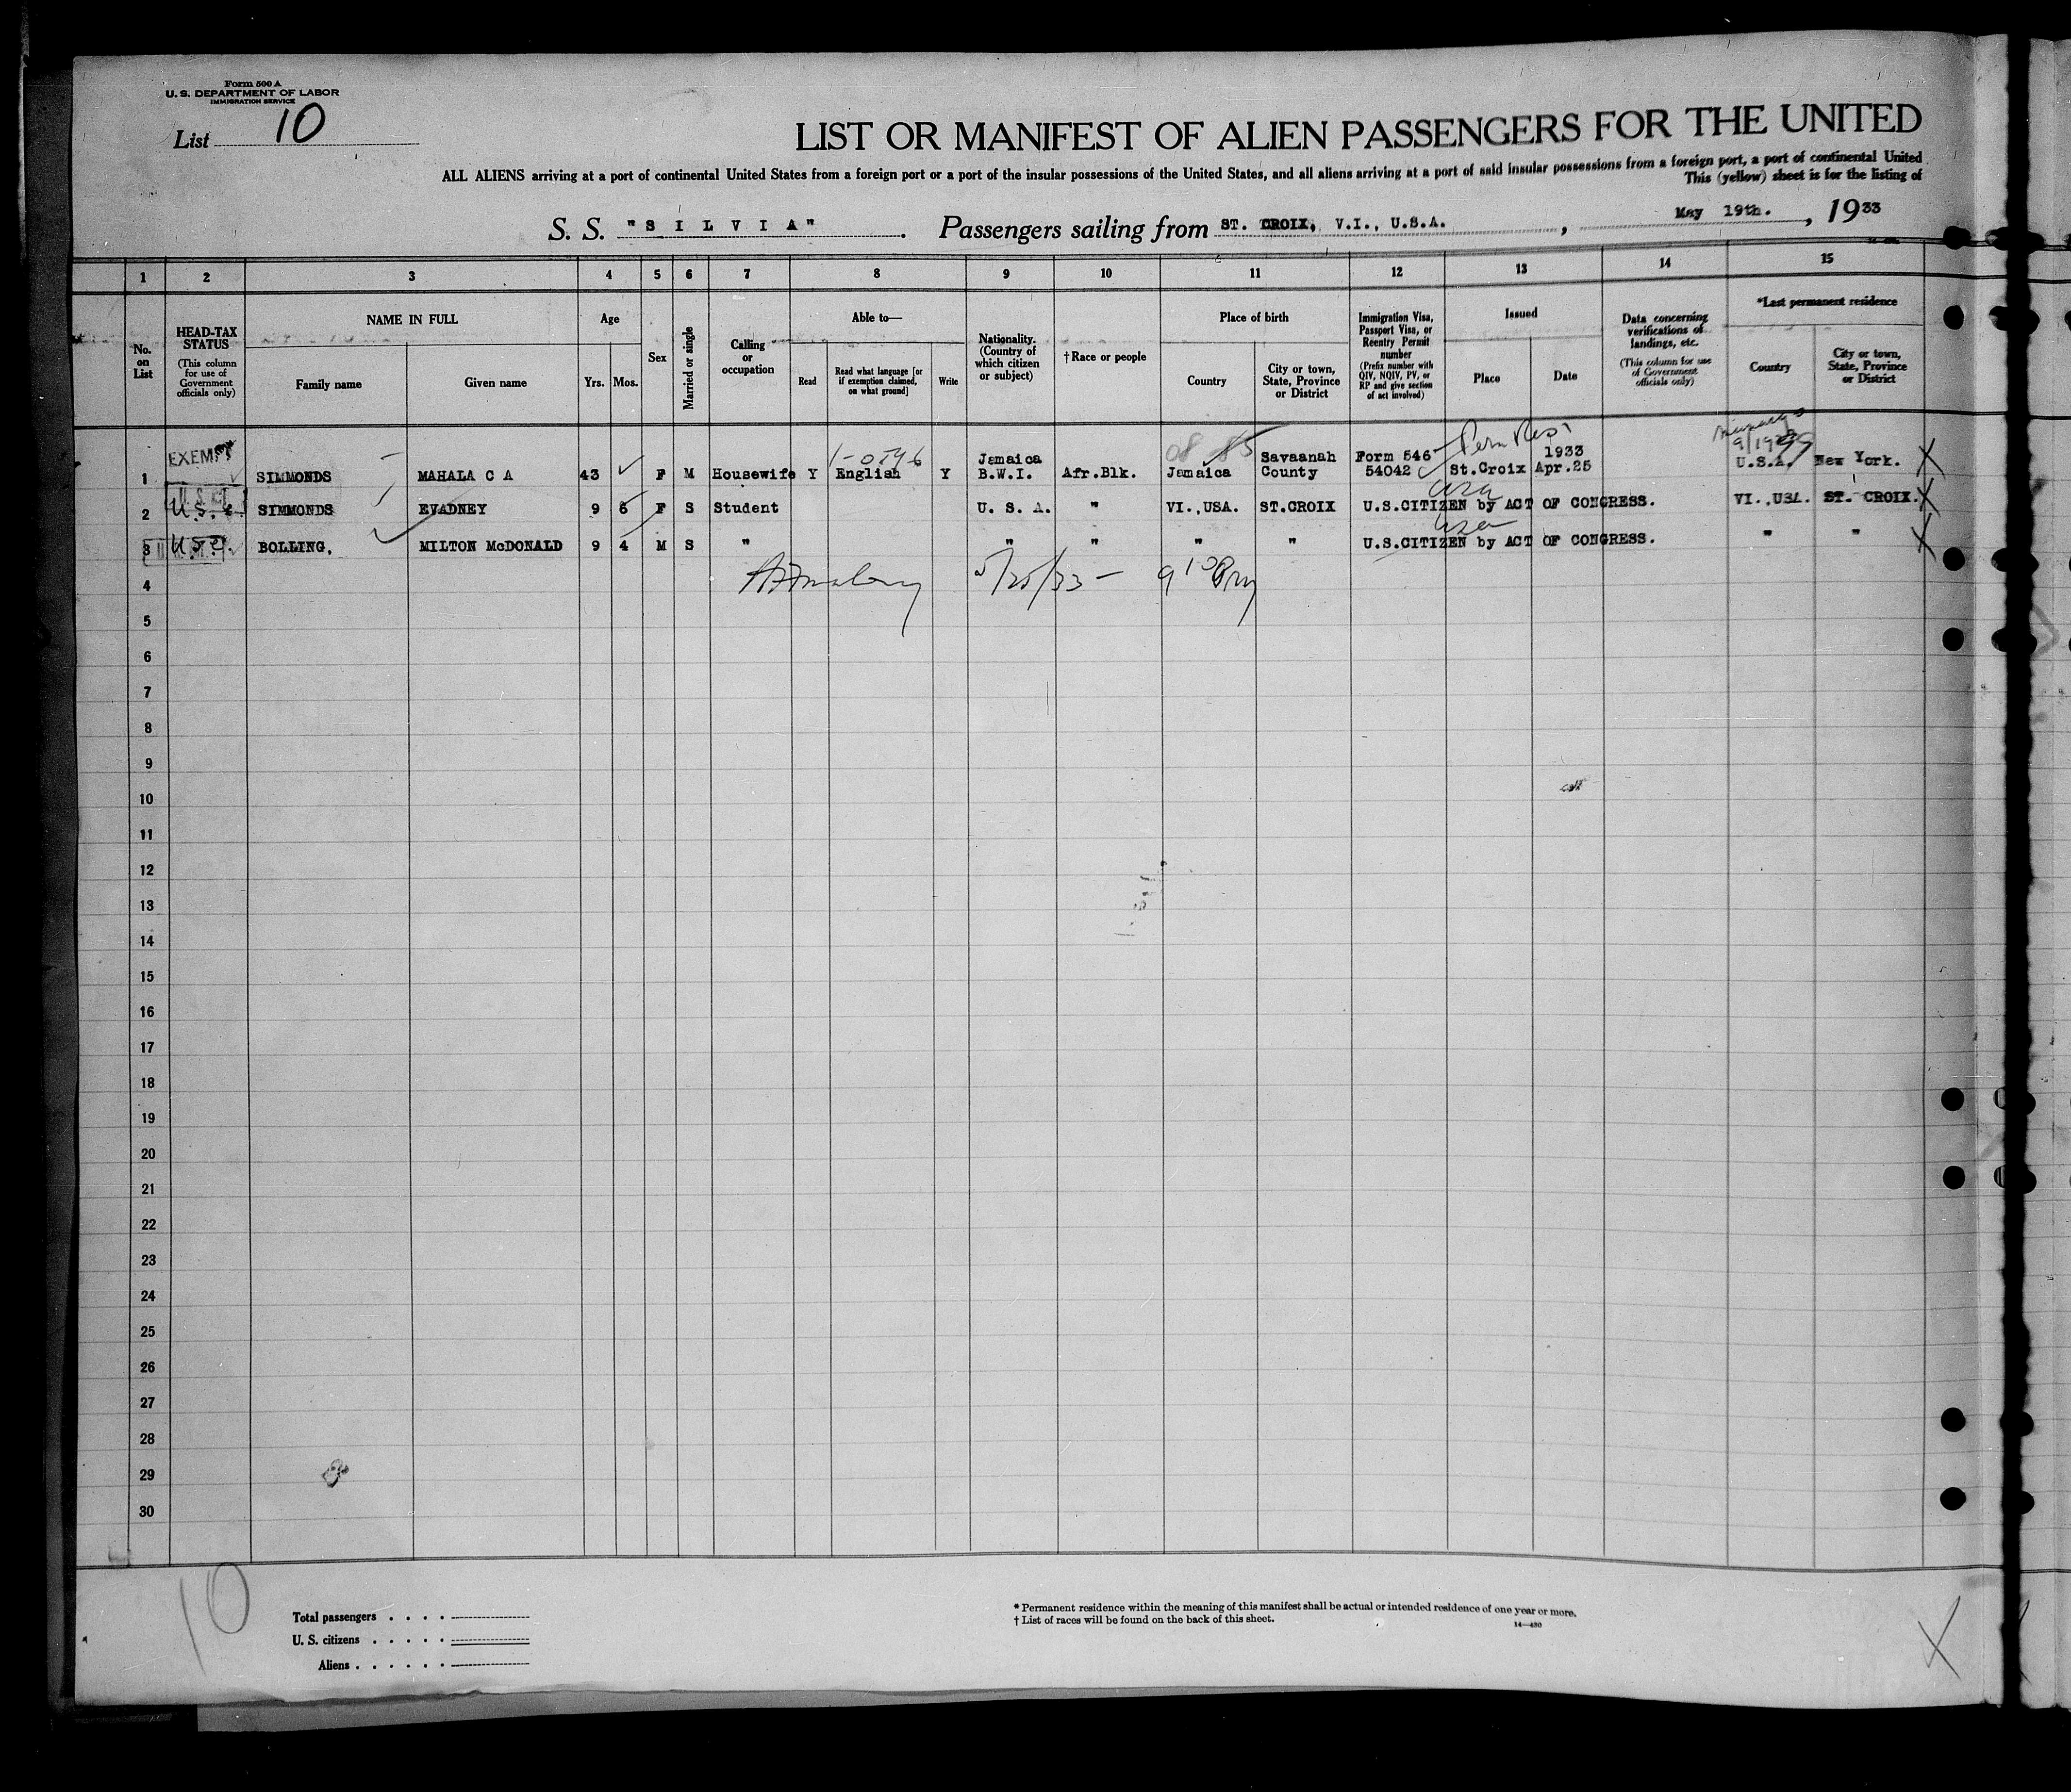 Form 500 A
U. S. DEPARTMENT OF LABOR
IMMIGRATION SERVICE
List 10
LIST OR MANIFEST OF ALIEN PASSENGERS FOR THE UNITED
ALL ALIENS arriving at a port of continental United States from a foreign port or a port of the insular possessions of the United States, and all aliens arriving at a port of said insular possessions from a foreign port, a port of continental United
This (yellow) sheet is for the listing of
S. S. "S I L V I A". Passengers sailing from ST. CROIX, V.I., U.S.A., May 19th., 1933
1 2 3 4 5 6 7 8 9 10 11 12 13 14 15
No. on List
HEAD-TAX STATUS (This column for use of Government officials only)
NAME IN FULL
Family name
Given name
Age
Yrs.
Mos.
Sex
Married or single
Calling or occupation
Able to—
Read
Read what language [or if exemption claimed, on what ground]
Write
Nationality. (Country of which citizen or subject)
†Race or people
Place of birth
Country
City or town, State, Province or District
Immigration Visa, Passport Visa, or Reentry Permit number (Prefix number with QIV, NQIV, PV, or RP and give section of act involved)
Issued
Place
Date
Data concerning verifications of landings, etc. (This column for use of Government officials only)
*Last permanent residence
Country
City or town, State, Province or District
1 EXEMPT SIMMONDS MAHALA C A 43 F M Housewife Y English Y Jamaica B.W.I. Afr.Blk. Jamaica Savaanah County Form 546 54042 St.Croix 1933 Apr.25 U.S.A. New York.
2 U.S.C. SIMMONDS EVADNEY 9 6 F S Student U. S. A. " VI.,USA. ST.CROIX U.S.CITIZEN by ACT OF CONGRESS. VI.,USA. ST. CROIX.
3 U.S.C. BOLLING, MILTON McDONALD 9 4 M S " " " " " U.S.CITIZEN by ACT OF CONGRESS. " "
4 5/25/33 –
5
6
7
8
9
10
11
12
13
14
15
16
17
18
19
20
21
22
23
24
25
26
27
28
29
30
10
Total passengers . . . .
U. S. citizens . . . . .
Aliens . . . . . .
* Permanent residence within the meaning of this manifest shall be actual or intended residence of one year or more.
† List of races will be found on the back of this sheet.
14—430